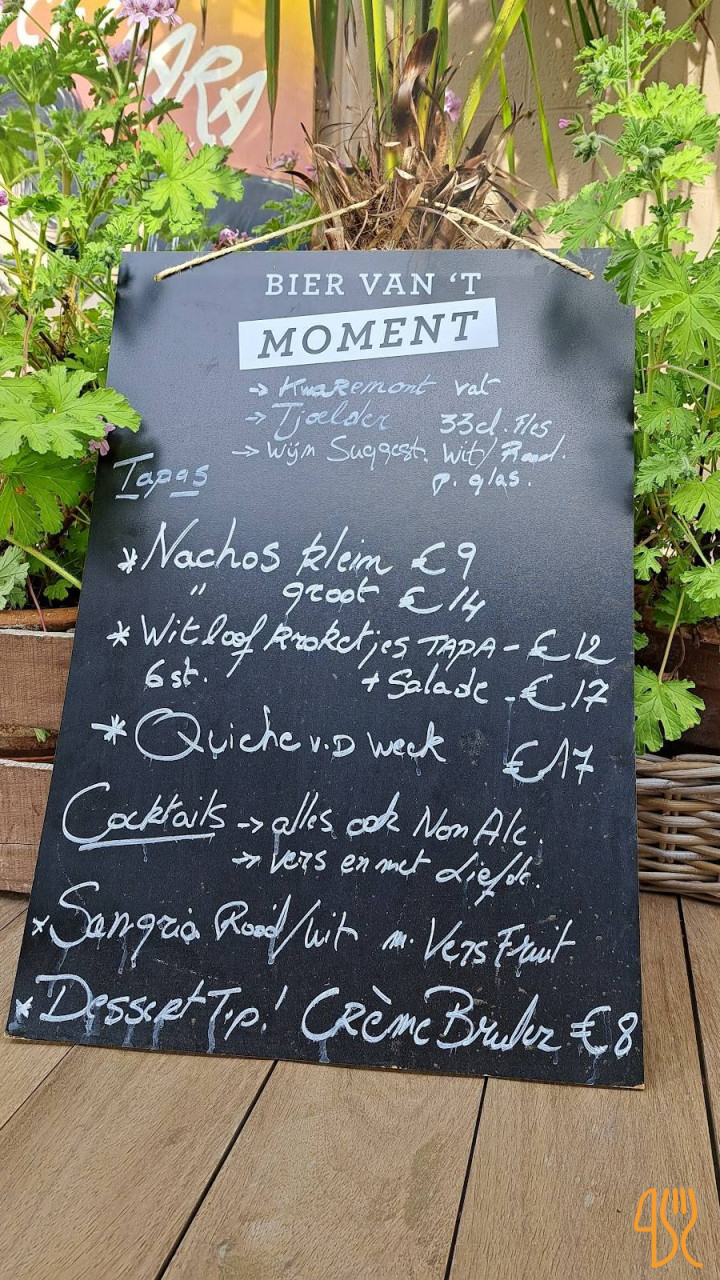 ARA
BIER VAN 'T
MOMENT
→ Kwaremont vat
→ Tjoelder 33cl. Fles
→ Wijn Suggest. Wit/Rood.
p. glas.
Tapas
* Nachos klein €9
" groot €14
* Witloof kroketjes TAPA - €12
6 st. + Salade - €17
* Quiche v.D week €17
Cocktails → alles ook Non Alc.
→ vers en met Liefde.
* Sangria Rood/wit m. Vers Fruit
* Dessert Tip! Crème Brulee €8